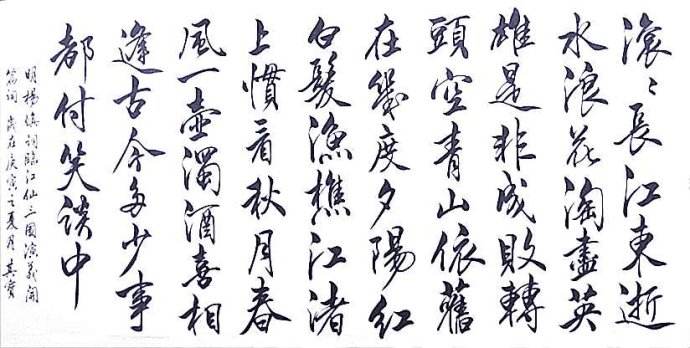 滾〻長江東逝
水浪花淘盡英
雄是非成敗轉
頭空青山依舊
在幾度夕陽紅
白髮漁樵江渚
上慣看秋月春
風一壺濁酒喜相
逢古今多少事
都付笑談中
明楊慎詞臨江仙三國演義開
篇詞 歲在庚寅之夏月